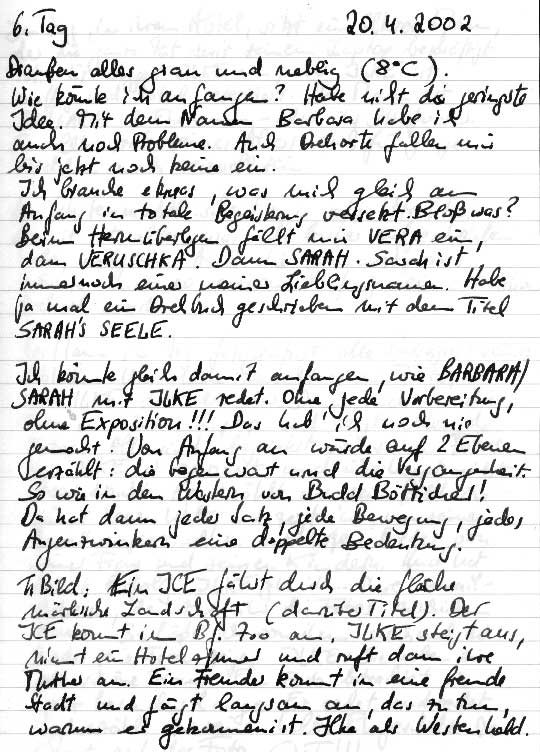 6. Tag 20.4.2002
Draußen alles grau und neblig (8°C).
Wie könnte ich anfangen? Habe nicht die geringste
Idee. Mit dem Namen Barbara habe ich
auch noch Probleme. Auch Drehorte fallen mir
bis jetzt noch keine ein.
Ich brauche etwas, was mich gleich am
Anfang in totale Begeisterung versetzt. Bloß was?
Beim Herumüberlegen fällt mir VERA ein,
dann VERUSCHKA. Dann SARAH. Sarah ist
immer noch einer meiner Lieblingsnamen. Habe
ja mal ein Drehbuch geschrieben mit dem Titel
SARAH'S SEELE.
Ich könnte gleich damit anfangen, wie BARBARA/
SARAH mit ILKE redet. Ohne jede Vorbereitung,
ohne Exposition!!! Das hab' ich noch nie
gemacht. Von Anfang an würde auf 2 Ebenen
erzählt: die Gegenwart und die Vergangenheit.
So wie in den Western von Budd Bötticher!
Da hat dann jeder Satz, jede Bewegung, jedes
Augenzwinkern eine doppelte Bedeutung.
1. Bild: Ein ICE fährt durch die flache
märkische Landschaft (darüber Titel). Der
ICE kommt im Bf. Zoo an. ILKE steigt aus,
nimmt ein Hotelzimmer und ruft dann ihre
Mutter an. Ein Fremder kommt in eine fremde
Stadt und fängt langsam an, das zu tun,
warum er gekommen ist. Ilke als Westernheld.